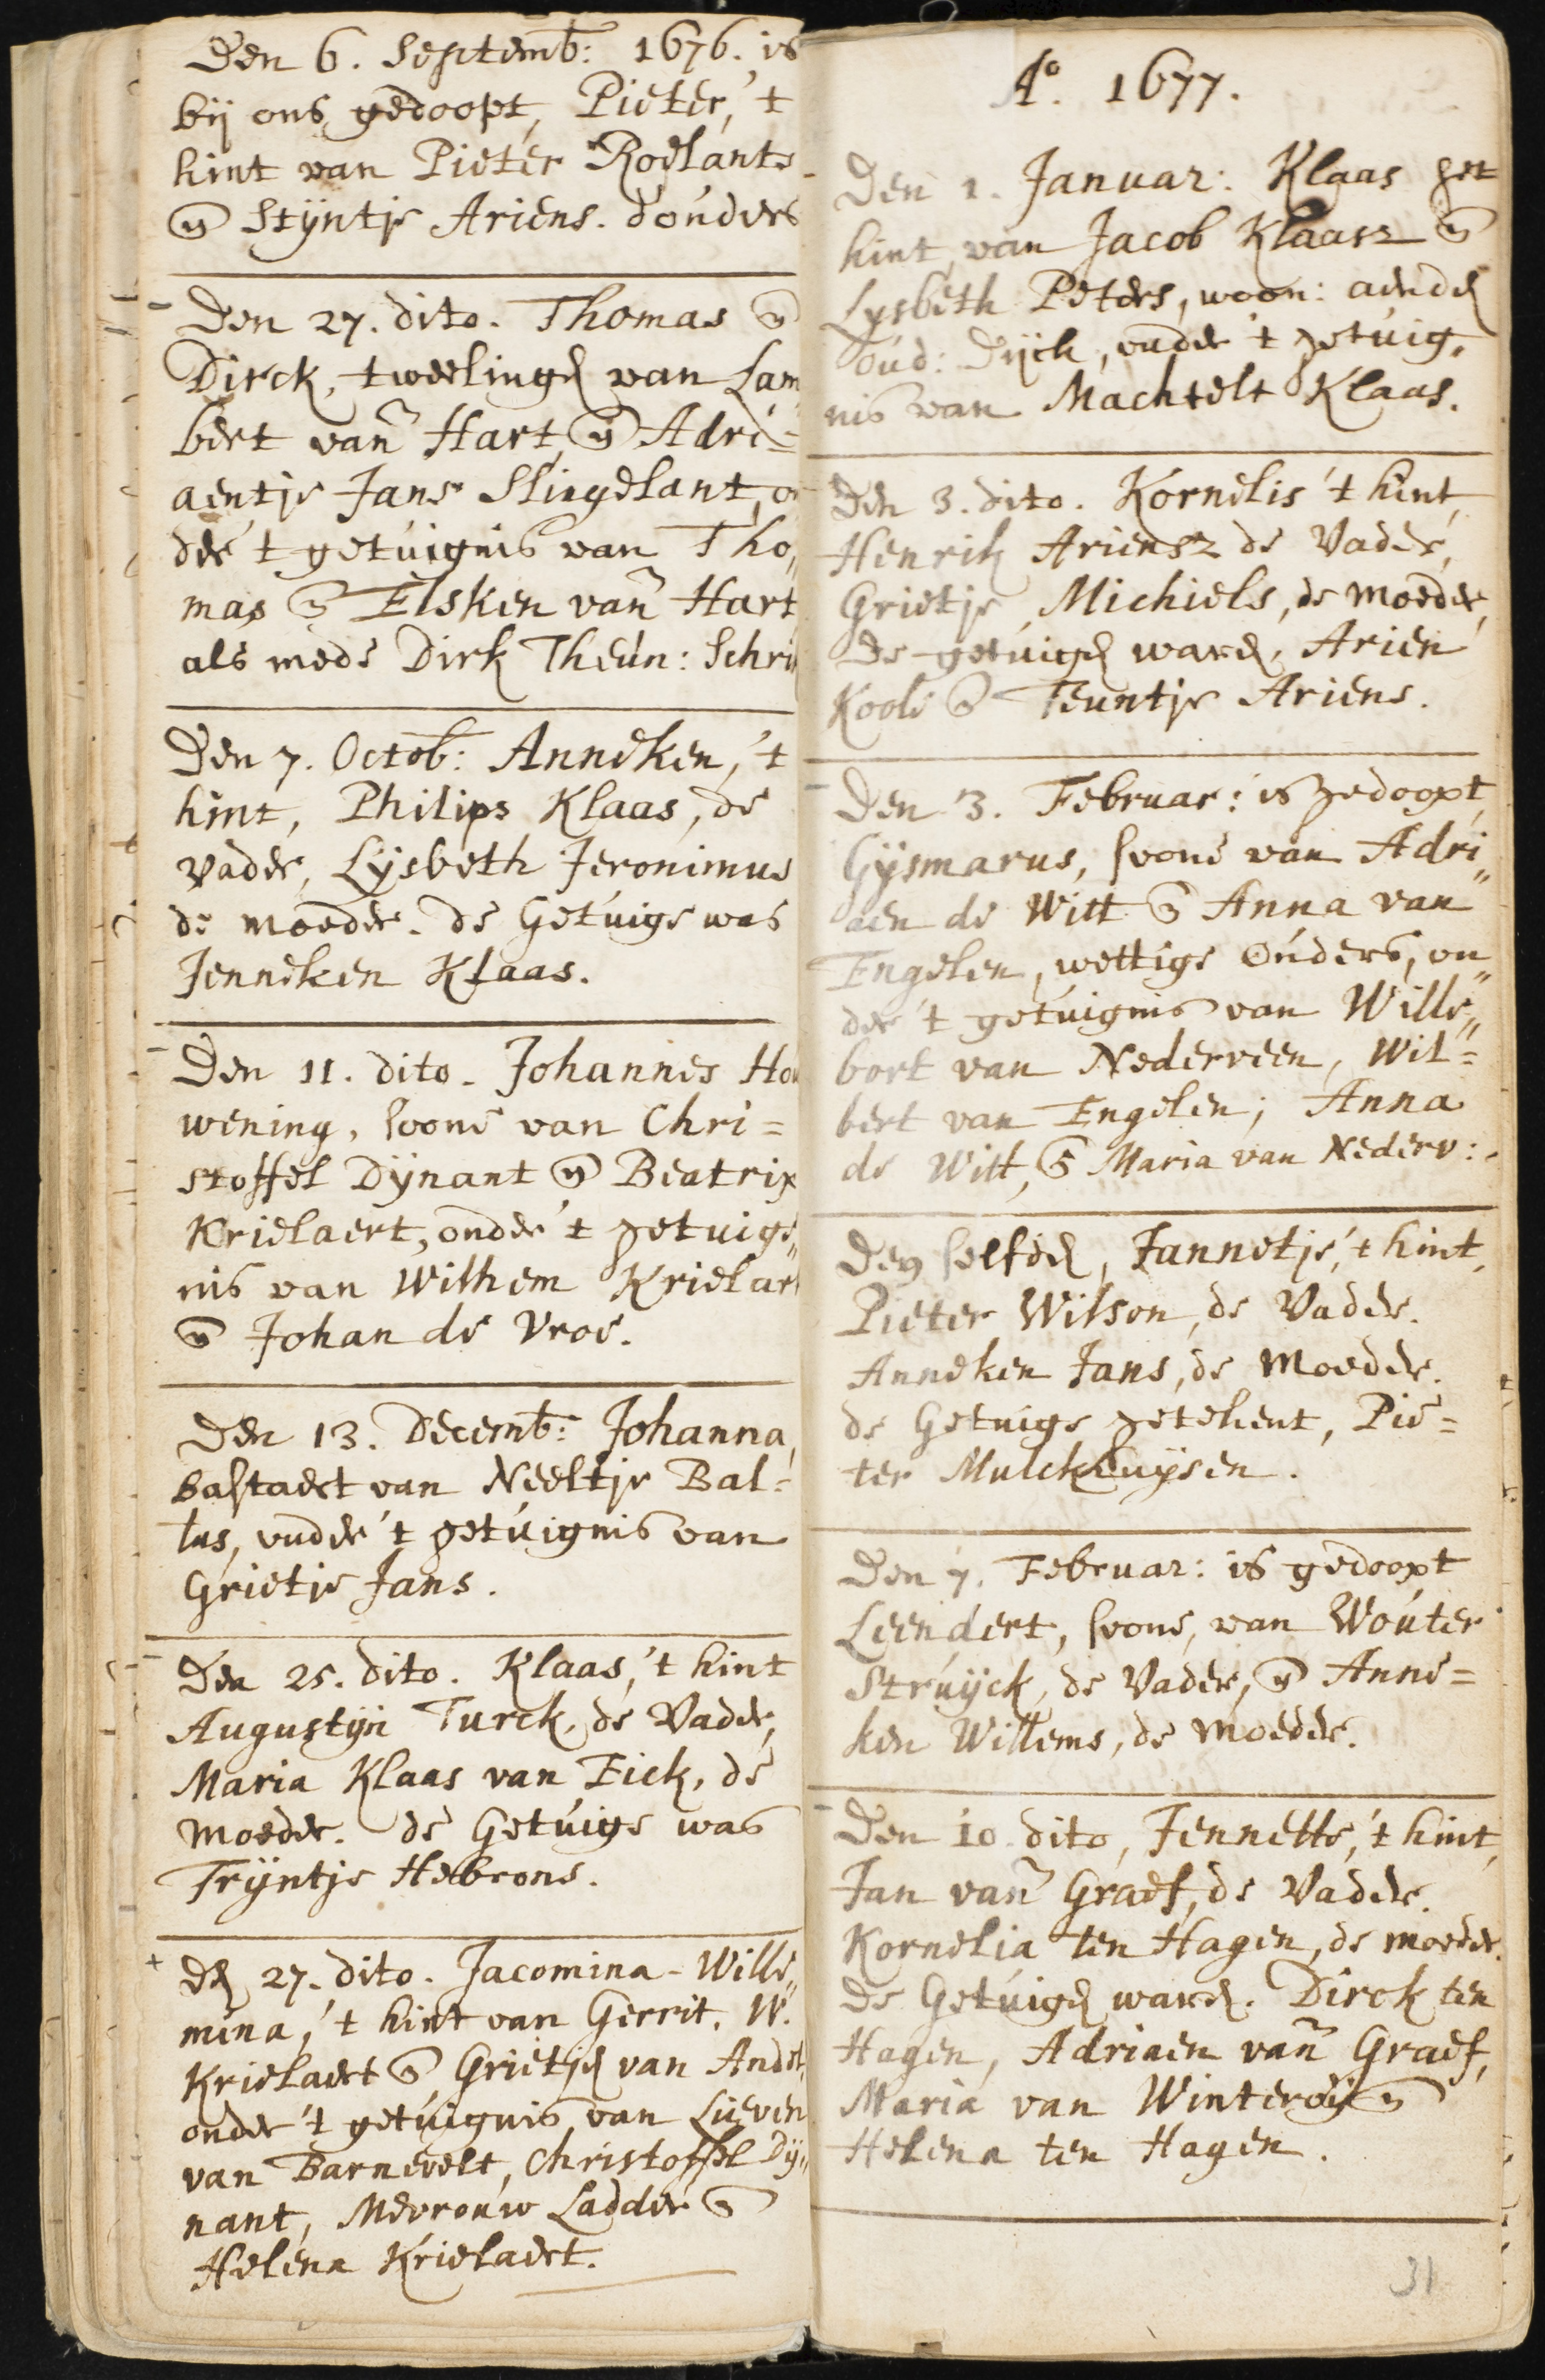 Den 6. Septemb: 1676. is
bij ons gedoopt, Pieter, 't
kint van Pieter Roelants
en Stÿntje Ariens. d'ouders
Den 27. dito. Thomas en
Dirck, tweelingen van Lam
bert van Hart, en Adri=
aentje Jans Slingelant, on
der 't getuignis van Tho„
mas en Elsken van Hart
als mede Dirk Theun: Schri
Den 7. Octob: Anneken, 't
kint, Philips Klaas, de
Vader, Lÿsbeth Jeronimus
de moeder. de Getuige was
Jenneken Klaas.
Den 11. dito. Johannes Ho
wening, soone van Chri=
stoffel Dÿnant en Beatrix
Krielaert, onder 't getuige„
nis van Wilhem Krielar
en Johan de Vroe.
Den 13. Decemb: Johanna,
bastaert van Neeltje Bal=
tus, onder 't getuignis van
Grietje Jans.
Den 25. dito. Klaas, 't kint
Augustÿn Turck, de Vader,
Maria Klaas van Eick, de
moeder. de Getuige was
Trÿntje Hebrons.
Den 27. dito. Jacomina-Wille„
mina, 't kint van Gerrit. W.
Krielaert en Grietjen van Andel,
onder 't getuignis van Lieven
van Barnevelt, Christoffel Dÿ„
nant, Mevrouw Ladder en
Helena Krielaert.
Aº. 1677.
Den 1. Januar: Klaas het
kint van Jacob Klaasz en
Lysbeth Peters, woon: aenden
oud: Dijck, onder 't getuig,
nis van Machtelt Klaas.
Den 3. dito. Kornelis 't kint,
Henrik Ariensz de Vader,
Grietje Michiels, de moeder,
De getuigen waren, Arien
Kooli en Teuntje Ariens.
Den 3. Februar: is gedoopt,
Gÿsmarus, soone van Adri„
aen de Witt en Anna van
Engelen, wettige Ouders, on„
der 't getuignis van Wille„
bort van Nederveen, Wil=
bert van Engelen; Anna
de Witt, en Maria van Nederv:
Den selfden, Jannetje, 't kint,
Pieter Wilson, de Vader.
Anneken Jans, de Moeder.
de Getuige getekent, Pie=
ter Mulckhuÿsen.
Den 7. Februar: is gedoopt
Leendert, soone, van Wouter
Struÿck, de Vader, en Anne=
ken Willems, de Moeder.
Den 10. dito, Jennette, 't kint,
Jan van Graef, de Vader.
Kornelia ten Hagen, de moeder.
De Getuigen waren. Dirck ten
Hagen, Adriaen van Graef,
Maria van Winteroÿ en
Helena ten Hagen.
31